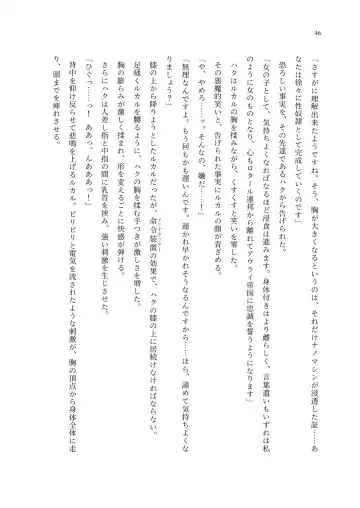 46
「さすがに理解出来たようですね。そう、胸が大きくなるというのは、それだけナノマシンが浸透した証……あ
なたは徐々に性奴隷として完成していくのです」
恐ろしい事実を、その先達であるハクから告げられた。
「女の子として、気持ちよくなればなるほど浸食は進みます。身体付きはより雌らしく、言葉遣いもいずれは私
のように女のものとなり、心もロタール連邦から離れてアウライ帝国に忠誠を誓うようになります」
ハクはルカルの胸を揉みながら、くすくすと笑いを零した。
その悪魔的な笑いと、告げられた事実にルカルの顔が青ざめる。
「や、やめろ……ッ。そんなの、嫌だ……！」
「無理なんですよ。もう何もかも遅いんです。遅かれ早かれそうなるんですから……ほら、諦めて気持ちよくな
りましょう？」
膝の上から降りようとしたルカルだったが、命令装置の効果で、ハクの膝の上に居続けなければならない。
足掻くルカルを嬲るように、ハクの胸を揉む手つきが激しさを増した。
胸の膨らみが激しく揉まれ、形を変えるごとに快感が弾ける。
さらにハクは人差し指と中指の間に乳首を挟み、強い刺激を生じさせた。
「ひぐっ……っ！　ああっ、んああああっ！」
背中を仰け反らせて悲鳴を上げるルカル。ビリビリと電気を流されたような刺激が、胸の頂点から身体全体に走
り、頭までを痺れさせる。